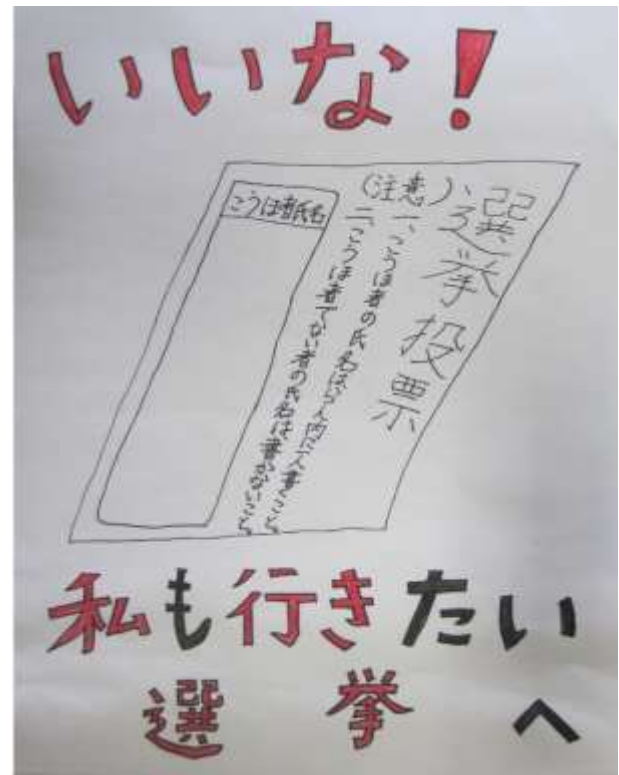 いいな!
選挙投票
(注意)
一、こうほ者の氏名はらん内に一人書くこと。
二、こうほ者でない者の氏名は書かないこと。
こうほ者氏名
私も行きたい
選挙へ